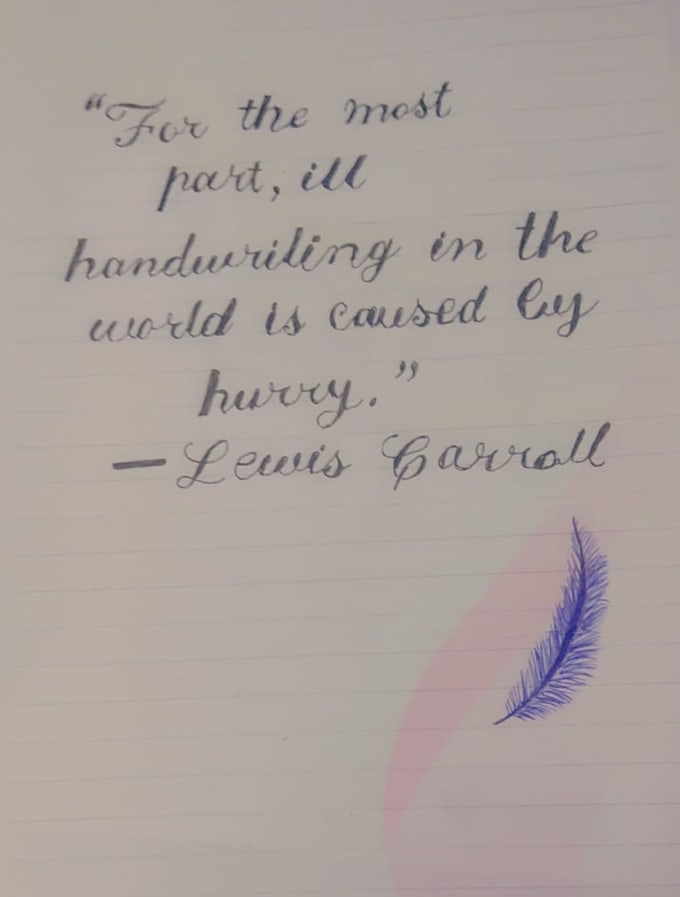 “For the most
part, ill
handwriting in the
world is caused by
hurry.”
— Lewis Carroll